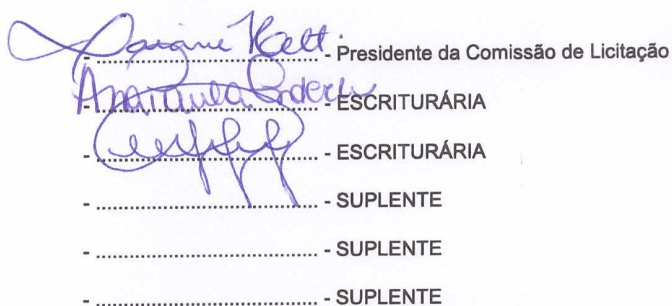 - .................................. - Presidente da Comissão de Licitação
- Ana Paula .................................. - ESCRITURÁRIA
- .................................. - ESCRITURÁRIA
- .................................. - SUPLENTE
- .................................. - SUPLENTE
- .................................. - SUPLENTE